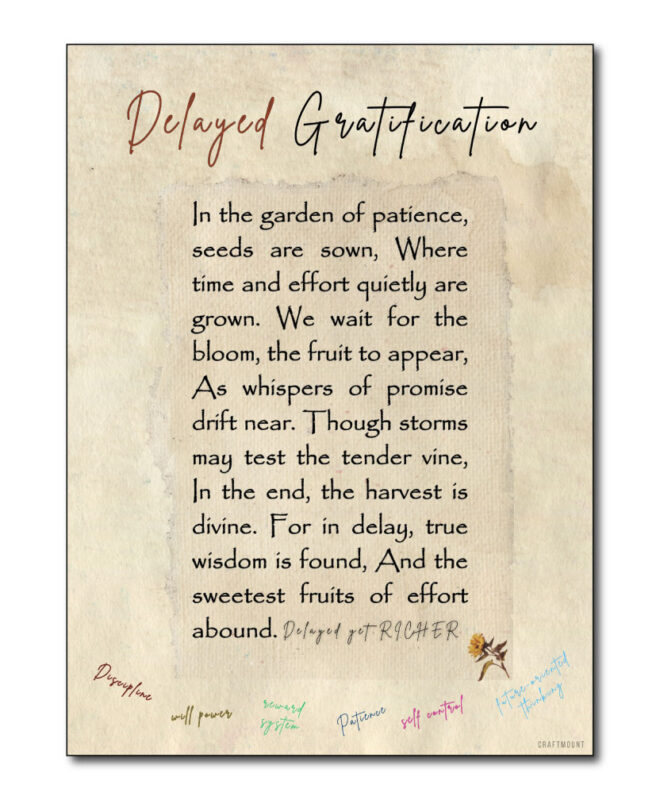 Delayed Gratification
In the garden of patience,
seeds are sown, Where
time and effort quietly are
grown. We wait for the
bloom, the fruit to appear,
As whispers of promise
drift near. Though storms
may test the tender vine,
In the end, the harvest is
divine. For in delay, true
wisdom is found, And the
sweetest fruits of effort
abound. Delayed yet RICHER
Discipline
will power
reward
system
Patience
self control
future-oriented
thinking
CRAFTMOUNT